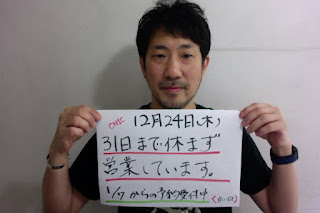 CHIC 12月24日(木)
31日まで休まず
営業しています。
1/7 からの予約受付中